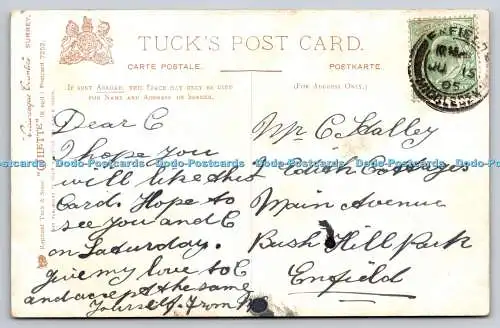 TUCK'S POST CARD.
CARTE POSTALE.
POSTKARTE.
IF SENT ABROAD, THIS SPACE MAY ONLY BE USED
FOR NAME AND ADDRESS OF SENDER.
(FOR ADDRESS ONLY.)
Dear C
I hope you
will like this
Card. Hope to
see you and C
on Saturday.
Give my love to E
and accept the same
Yourself. From
Mr C Halley
Edith Cottages
Main Avenue
Bush Hill Park
Enfield
Picturesque Counties SURREY.
Raphael Tuck & Sons' "OILETTE" [Regd.] Postcard 7222.
ENFIELD
JU 15
05
Dodo-Postcards Dodo-Postcards Dodo-Postcards Dodo-Postcards Dodo-Postcards